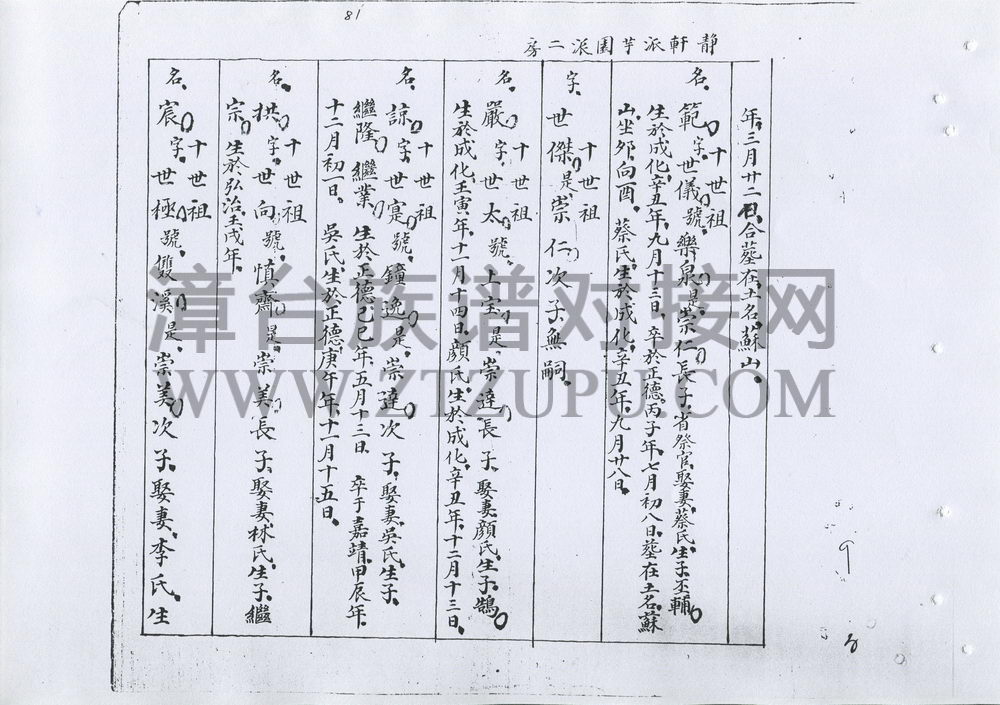 81
靜軒派芋園派二房
年。三月廿二日。合墓在土名蘇山。
十世祖
名。範字世儀號樂泉是崇仁長子。省祭官。娶妻蔡氏。生子丕輔
生於成化辛丑年。九月十三日。卒於正德丙子年七月初八日。墓在土名蘇
山。坐夘向酉。蔡氏。生於成化。辛丑年。九月廿八日。
十世祖
字。世傑是崇仁次子無嗣。
十世祖
名。嚴字世太號上宝是崇達長子。娶妻顏氏。生子鵠
生於成化壬寅年。十一月十四日。顏氏生於成化辛丑年。十二月十三日。
十世祖
名。諒字世寔號鐘逸是崇達次子。娶妻吳氏。生子。
繼隆繼業 生於正德己巳年。五月十三日 卒于嘉靖甲辰年。
十二月初一日。吳氏。生於正德庚午年。十一月十五日。
十世祖
名。拱字世向號慎齋是崇美長子。娶妻林氏。生子繼
宗。生於弘治壬戌年。
十世祖
名。宸字世極號雙溪是崇美次子。娶妻李氏生
漳台族谱对接网
WWW.ZTZUPU.COM